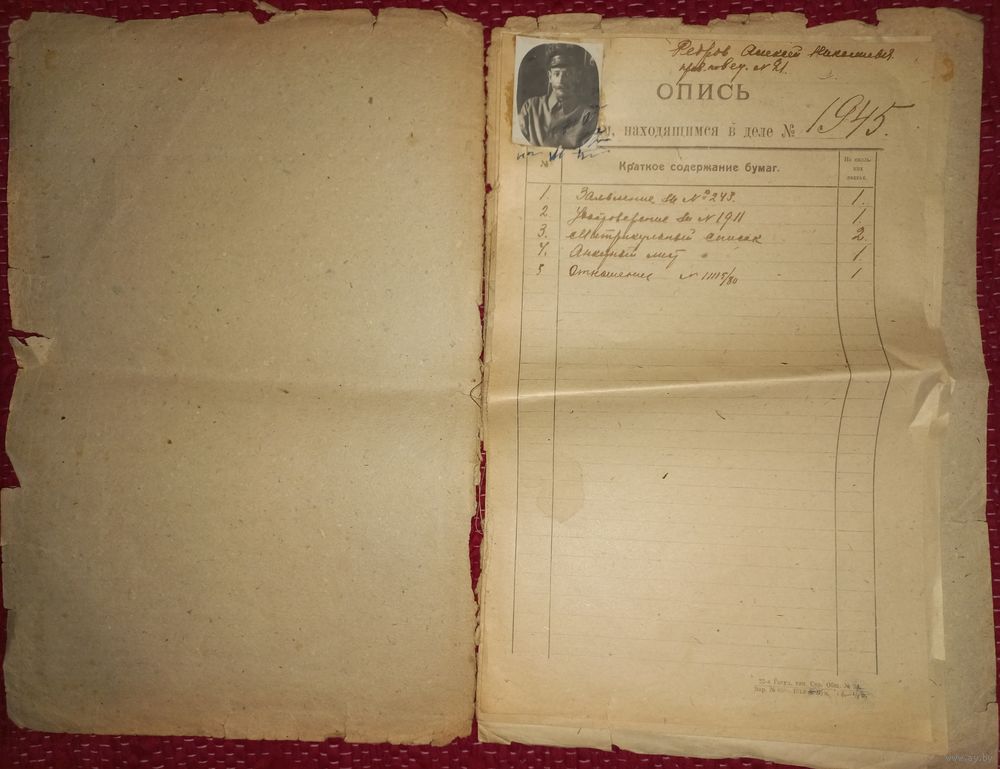 Алексей Николаевич
№ 21.
ОПИСЬ
находящимся в деле № 1945.
№
Краткое содержание бумаг.
На сколь-
ких
листах.
1. Заявление за № 248. 1.
2 Удостоверение за № 1911 1.
3. Матрикульный список 2
4. Анкетный лист 1
5 Отношение № 11115/80 1
www.ay.by